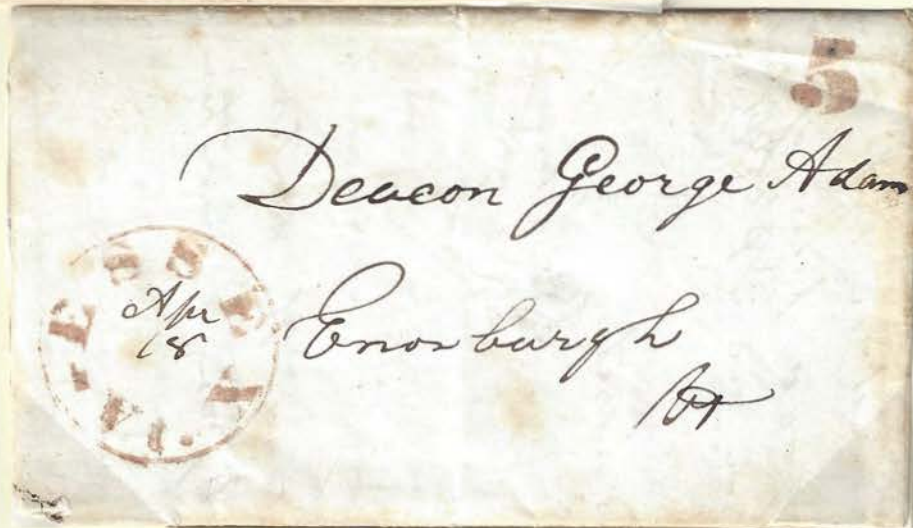 5
Deacon George Adams
ESSEX VT.
Apr
18
Enosburgh
Vt